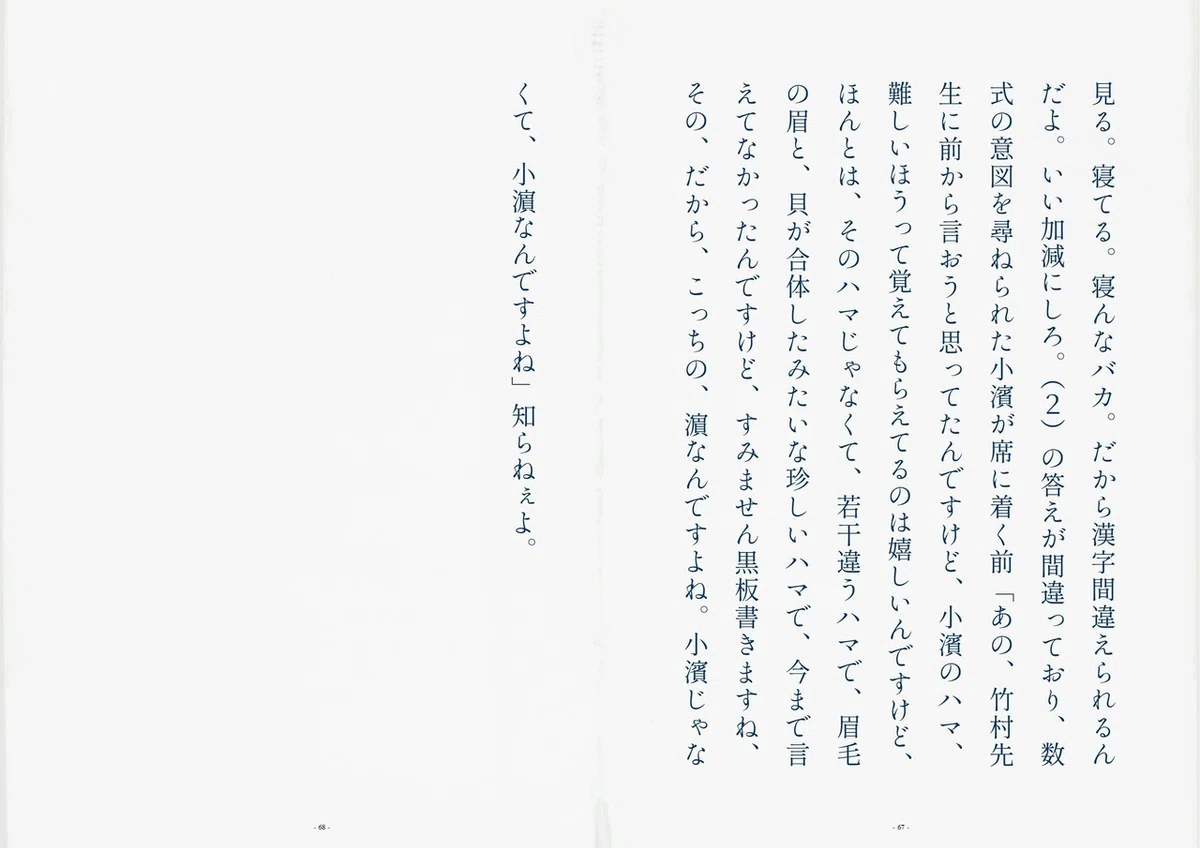 見る。寝てる。寝んなバカ。だから漢字間違えられるん
だよ。いい加減にしろ。（２）の答えが間違っており、数
式の意図を尋ねられた小濱が席に着く前「あの、竹村先
生に前から言おうと思ってたんですけど、小濱のハマ、
難しいほうって覚えてもらえてるのは嬉しいんですけど、
ほんとは、そのハマじゃなくて、若干違うハマで、眉毛
の眉と、貝が合体したみたいな珍しいハマで、今まで言
えてなかったんですけど、すみません黒板書きますね、
その、だから、こっちの、濵なんですよね。小濱じゃな
- 67 -
くて、小濵なんですよね」知らねぇよ。
- 68 -